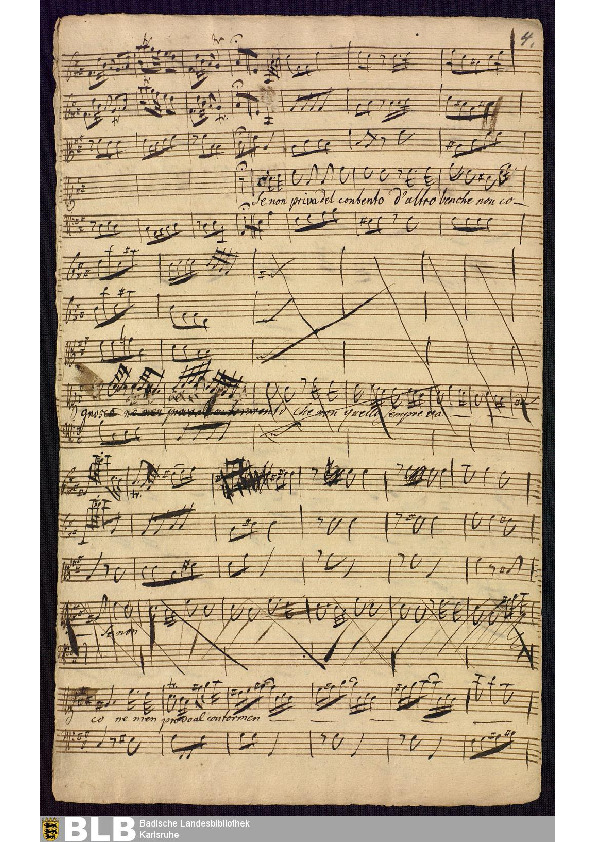 4.
Se non priva del contento d'altro benche non co-
gnosce ne men provo al conformento che non quello sempre sta
Se non
co ne men provo al conformen
BLB Badische Landesbibliothek
Karlsruhe